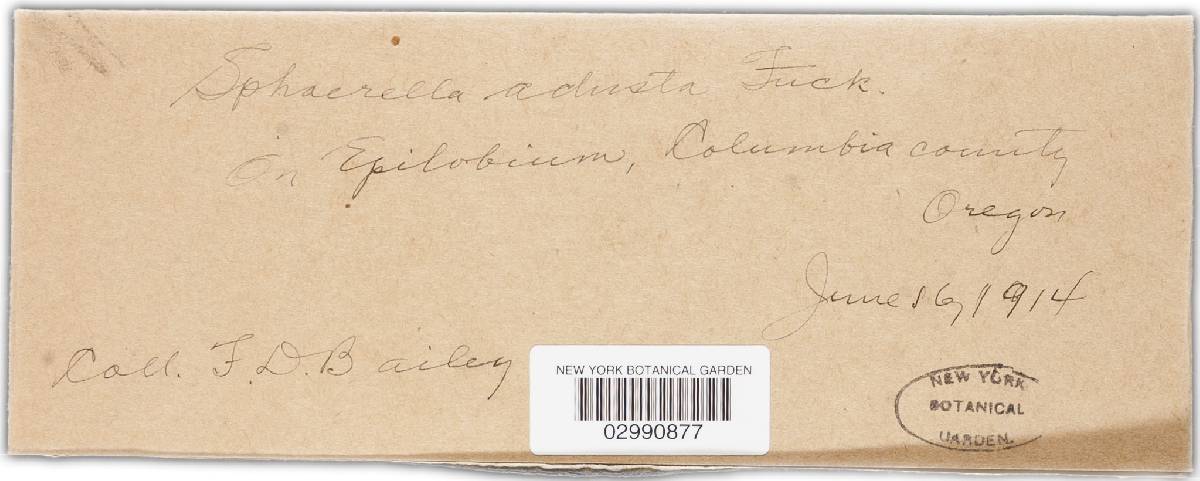 Sphaerella adusta Fuck.
on Epilobium, Columbia county
Oregon
June 16, 1914
Coll. F. D. Bailey
NEW YORK BOTANICAL GARDEN
02990877
NEW YORK
BOTANICAL
GARDEN.